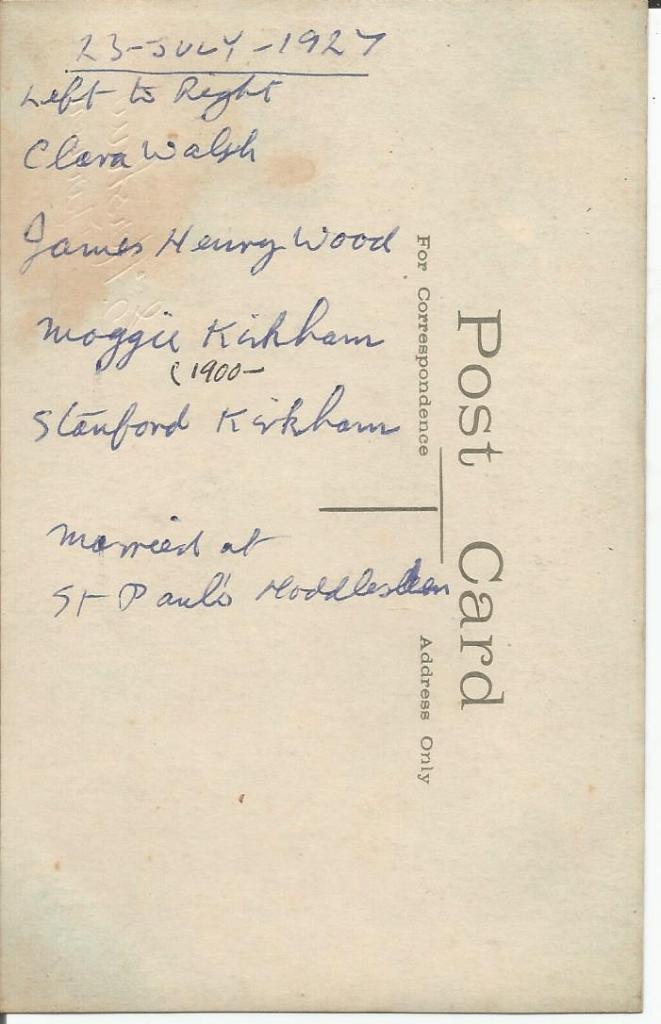 23-JULY-1927
Left to Right
Clara Walsh
James Henry Wood
Maggie Kirkham
(1900-
Stanford Kirkham
Married at
St Paul's Hoddlesden
Post Card
For Correspondence
Address Only